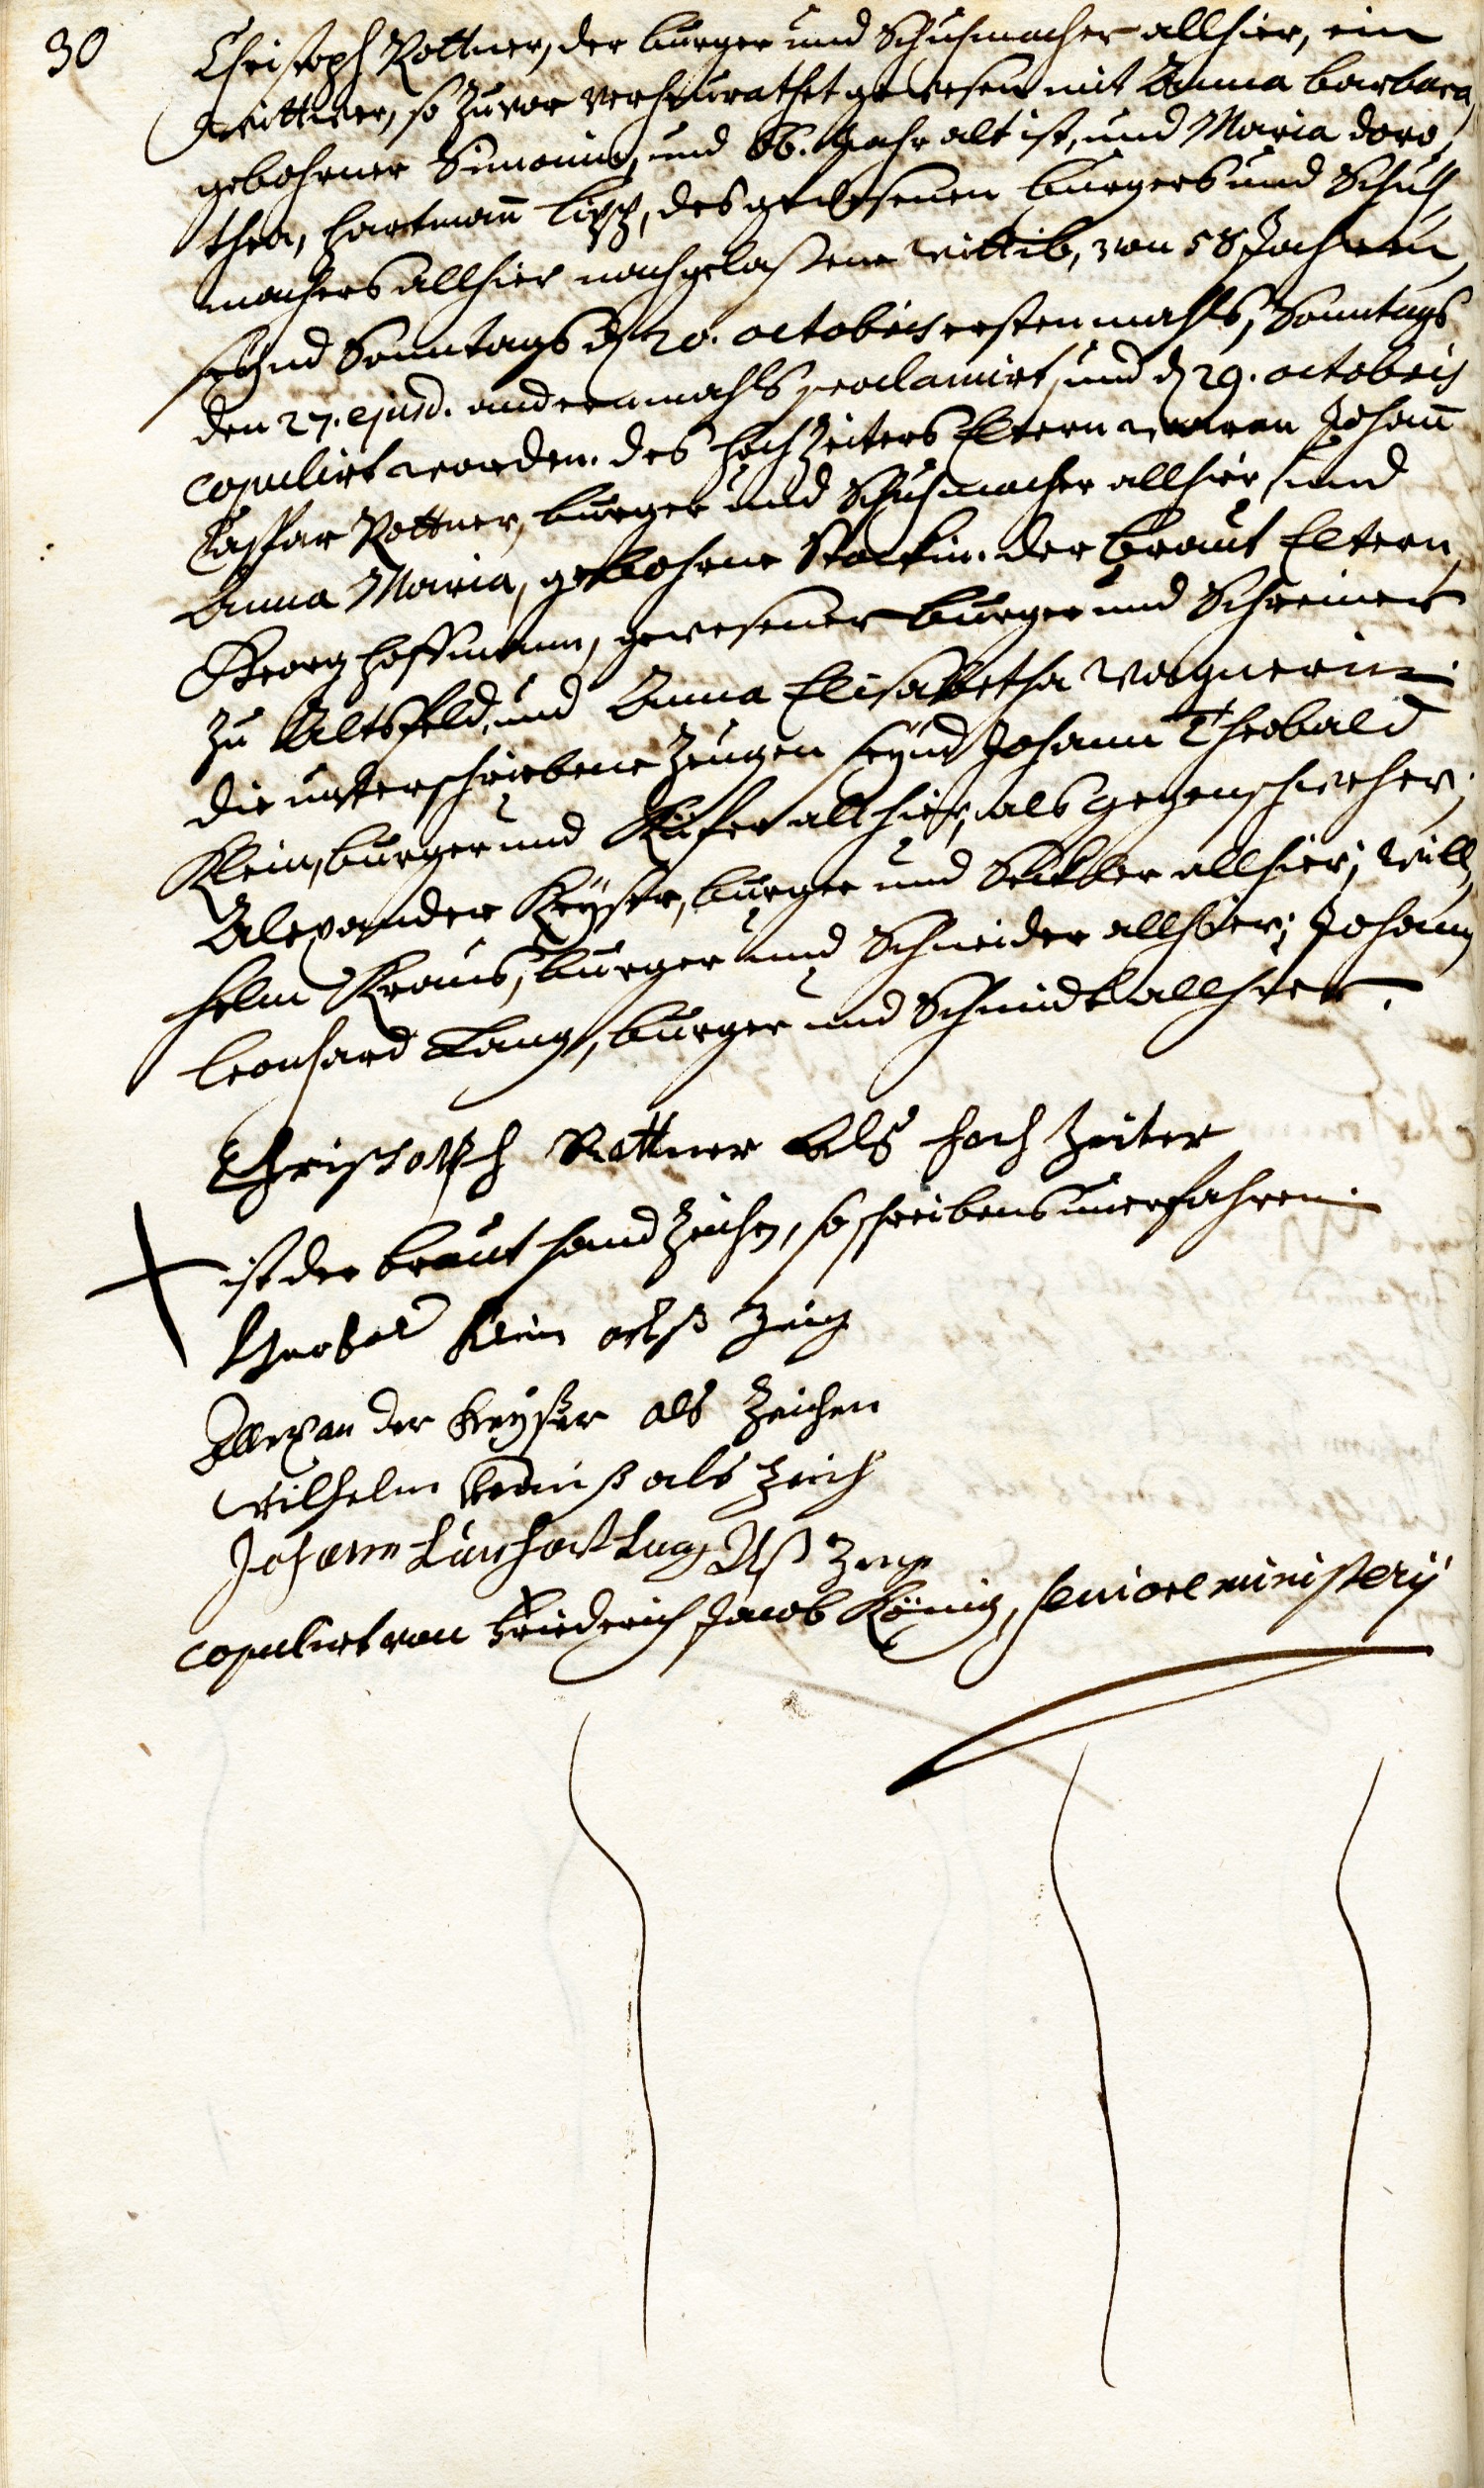 30
Christoph Rottner, der burger und Schuhmacher allhier, ein
wittwer, so zuvor verheurathet gewesen mit Anna barbara,
gebohrner Simonin, und 66. Jahr alt ist, und Maria doro,
thea, Hartmann, des gewesenen burgers und Schuh,
machers allhier nachgelaßene wittib, von 58 Jahren,
seynd Sonntags d. 20. octobris erstenmahls, Sonntags
den 27. ejusd. andernmahls proclamirt, und d. 29. octobris
copulirt worden. des hochzeiters Eltern waren Johann
Caspar Rottner, burger und Schuhmacher allhier, und
Anna Maria, gebohrne Starkin. der braut Eltern,
Georg hoffmann, gewesener burger und Schreiner
zu Altsfeld, und Anna Elisabetha Wagnerin.
die unterschriebene Zeugen seynd Johann Theobald
Klein, burger und Küfer allhier, als gegenschweher;
Alexander Keyser, burger und Seckler allhier; Will,
helm Kraus, burger und Schneider allhier; Johann
leonhard Lang, burger und Schmidt allhier.
Christoph Rottner als hoch zeiter
ist der braut handzeichen, so schreibens unerfahren.
Theobald Klein alß zeug
Allexan der Keyßer als zeichen
wilhelm Krauß als zeich
Johann Lang Alß zeug
copulirt von Friederich Jacob König, seniore ministerii